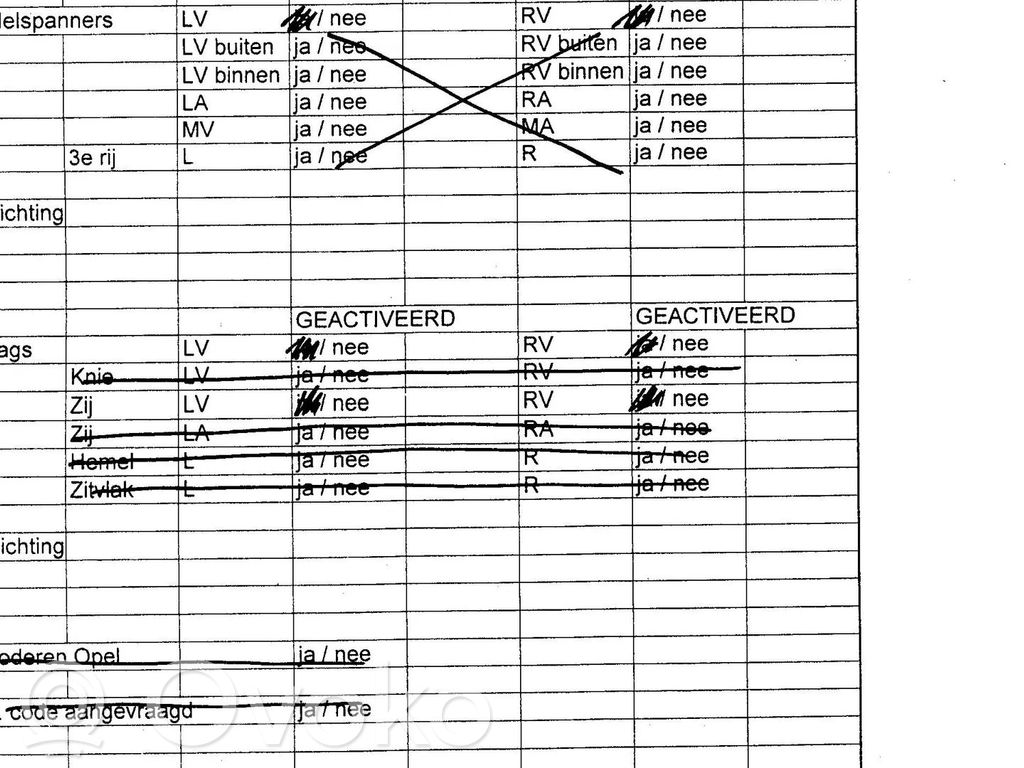 delspanners LV ja / nee RV ja / nee
LV buiten ja / nee RV buiten ja / nee
LV binnen ja / nee RV binnen ja / nee
LA ja / nee RA ja / nee
MV ja / nee MA ja / nee
3e rij L ja / nee R ja / nee
ichting
GEACTIVEERD GEACTIVEERD
ags LV / nee RV / nee
Knie LV ja / nee RV ja / nee
Zij LV / nee RV / nee
Zij LA ja / nee RA ja / nee
Hemel L ja / nee R ja / nee
Zitvlak L ja / nee R ja / nee
ichting
oderen Opel ja / nee
code aangevraagd ja / nee
Ovoko